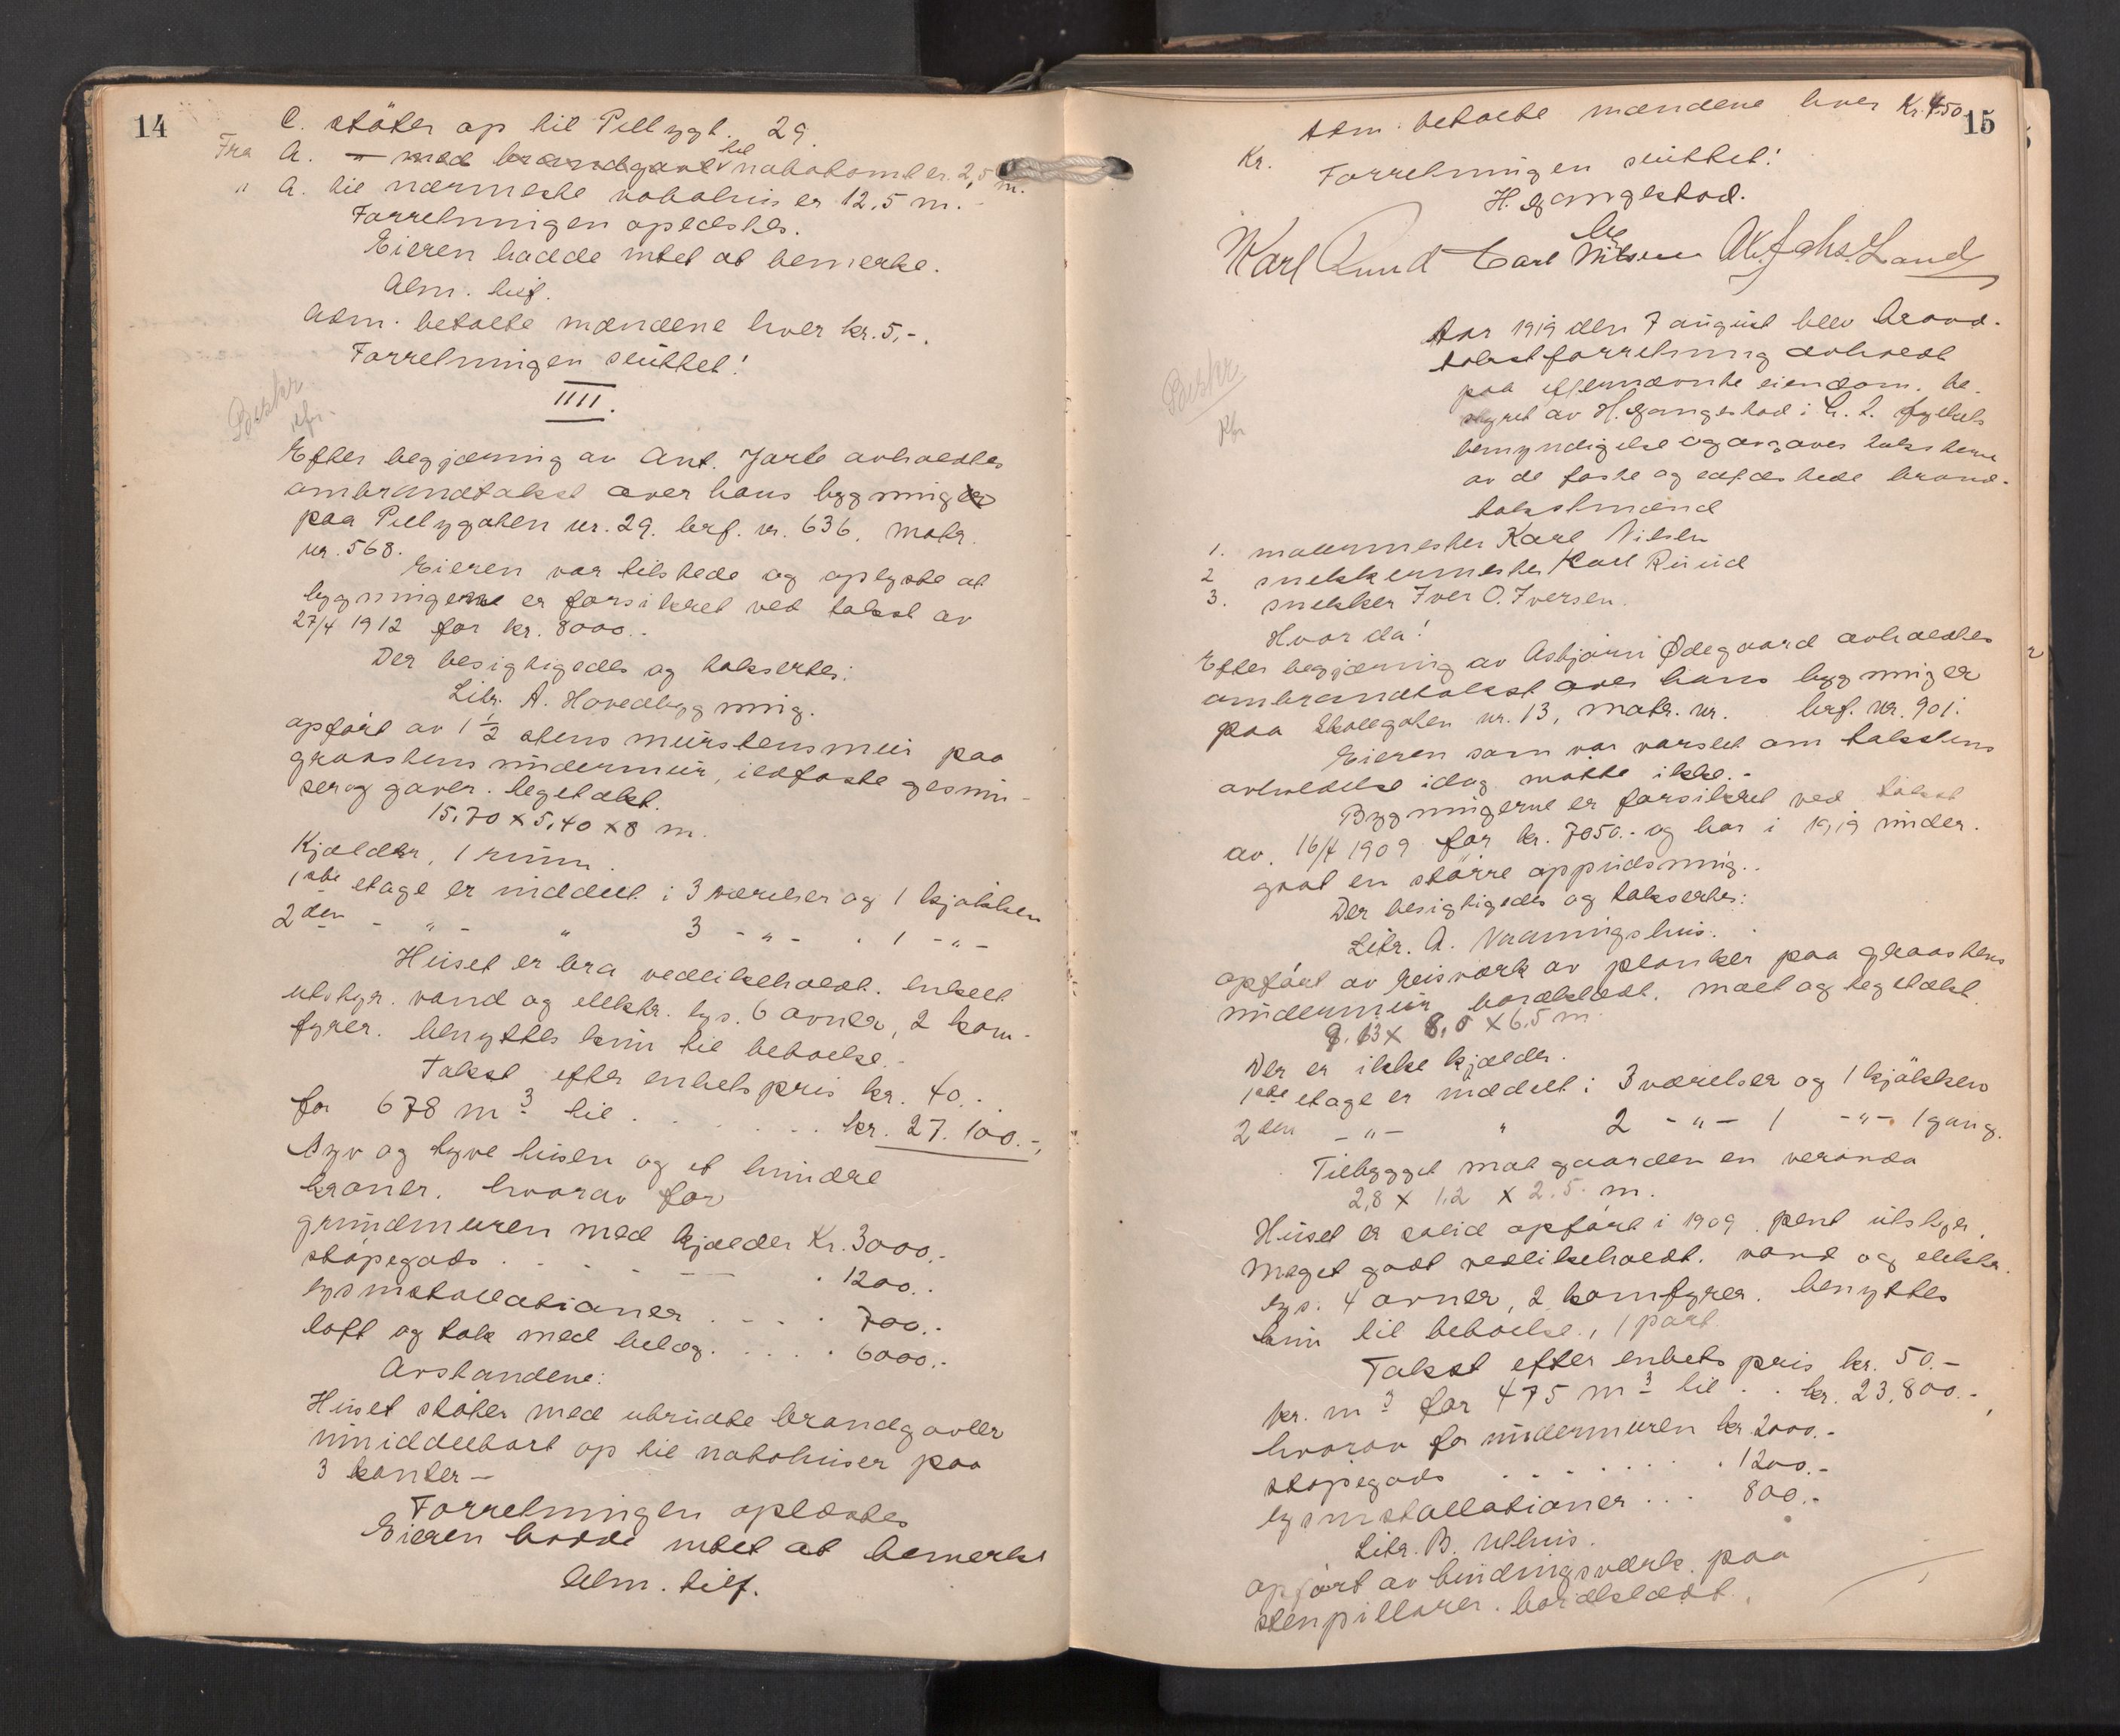 14
C. støter op til Pellygt. 29.
Fra A. - " - med brandgavl til nabotomt er 2,5 m.
" A. til nærmeste nabohus er 12,5 m. -
Forretningen oplæstes.
Eieren hadde intet at bemerke.
Alm. tilf.
Adm. betalte mændene hver kr. 5,-.
Forretningen sluttet!
IIII.
Beskr
Efter begjæring av Ant. Jarle avholdtes
ombrandtakst over hans bygning
paa Pellygaten nr. 29. brf. nr. 636. Matr.
nr. 568.
Eieren var tilstede og oplyste at
bygningerne er forsikret ved takst av
27/4 1912 for kr. 8000.-
Der besigtigedes og taksertes:
Litr. A. Hovedbygning.
opført av 1 1/2 stens murstensmur paa
graastens undermur, ildfaste gesim-
ser og gavler. teglt​ækt.
15,70 x 5,40 x 8 m.
Kjælder, 1 rum.
1ste etage er inddelt i 3 værelser og 1 kjøkken
2den - " - " 3 - " - . 1 - " -
Huset er bra vedlikeholdt. enkelt
utstyr. vand og elektr. lys. 6 ovner, 2 kom-
fyrer. benyttes kun til beboelse.-
Takst efter enhetspris kr. 40.-
for 678 m3 til . . . . . . kr. 27.100.-,
syv og tyve tusen og et hundre
kroner. hvorav for
grundmuren med kjælder Kr. 3000.-
støpegods . . . . . 1200.-
lysinstallationer . . . . 700.-
loft og tak med belæg. . . . . 6000.-
Avstandene:
Huset støter med utbrudte brandgavler
umiddelbart op til nabohuser paa
3 kanter -
Forretningen oplæstes
Eieren hadde intet at bemerke
Alm. tilf.
15
Adm. betalte mændene hver Kr. 4.50
Kr.
Forretningen sluttet!
H. Gangestad.
Karl Ruud Carl Nilsen
Beskr
Aar 1919 den 7 august blev brand-
takstforretning avholdt
paa efternævnte eiendom. be-
styret av H. Gangestad i h. t. fylkets
bemyndigelse og avgaves taksterne
av de faste og edfæstede brand-
takstmænd
1. malermester Karl Nilsen
2 snekkermester Karl Ruud
3. snekker Iver O. Iversen.
Hvor da!
Efter begjæring av Asbjørn Ødegaard avholdtes
ombrandtakst over hans bygninger
paa Skollegaten nr. 13, Matr. nr. brf. nr. 901.
Eieren som var varslet om takstens
avholdelse idag møtte ikke.-
Bygningerne er forsikret ved takst
av 16/4 1909 for kr. 7050.- og har i 1919 under-
gaat en større oppudsning..
Der besigtigedes og taksertes:
Litr. A. Vaaningshus.
opført av reisværk av planker paa graastens
undermur bordklædt. malt og tegltækt.
9,13 x 8,0 x 6,5 m
Der er ikke kjælder.
1ste etage er inddelt i 3 værelser og 1 kjøkken
2den - " - " 2 - " - 1 - " - 1 gang.
Tilbygget mot gaarden en veranda
2,8 x 1,2 x 2.5 m.
Huset er solid opført i 1909. pent utstyr.
Meget godt vedlikeholdt. vand og elektr.
lys. 4 ovner, 2 komfyrer. benyttes
kun til beboelse, 1 part.
Takst efter enhets pris kr. 50.-
pr. m3 for 475 m3 til . . kr. 23,800.-,
hvorav for undermuren kr 2000.-
støpegods . . . . . . 1200.-
lysinstallationer . . . 800.-
Litr. B. Uthus.
opført av bindingsværk paa
stenpillarer. bordklædt.